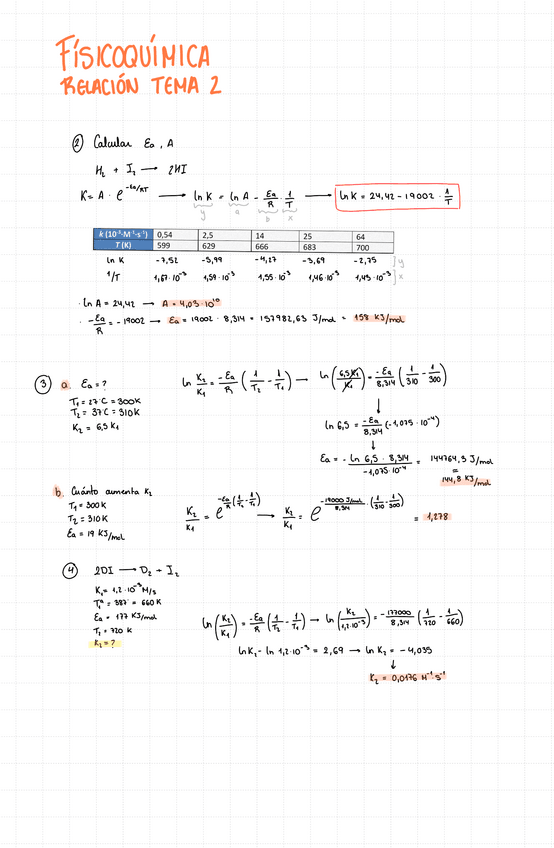 FÍSICOQUÍMICA
RELACIÓN TEMA 2
② Calcular Ea, A
H₂ + I₂ → 2HI
K = A · e^(-Ea/RT) → ln K = ln A - Ea/R · 1/T → ln K = 24,42 - 19002 · 1/T
y a b x
k (10⁻³·M⁻¹·s⁻¹) 0,54 2,5 14 25 64
T (K) 599 629 666 683 700
ln K -7,52 -5,99 -4,27 -3,69 -2,75 ] y
1/T 1,67·10⁻³ 1,59·10⁻³ 1,55·10⁻³ 1,46·10⁻³ 1,43·10⁻³ ] x
· ln A = 24,42 → A = 4,03·10¹⁰
· -Ea/R = -19002 → Ea = 19002 · 8,314 = 157982,63 J/mol = 158 KJ/mol
③ a. Ea = ?
T₁ = 27°C = 300K
T₂ = 37°C = 310K
K₂ = 6,5 K₁
ln K₂/K₁ = -Ea/R (1/T₂ - 1/T₁) → ln (6,5 K₁/K₁) = -Ea/8,314 (1/310 - 1/300)
ln 6,5 = -Ea/8,314 (-1,075·10⁻⁴)
Ea = - ln 6,5 · 8,314 / -1,075·10⁻⁴ = 144764,3 J/mol
=
144,8 KJ/mol
b. Cuánto aumenta K₂
T₁ = 300K
T₂ = 310K
Ea = 19 KJ/mol
K₂/K₁ = e^(-Ea/R (1/T₂ - 1/T₁)) → K₂/K₁ = e^(-19000 J/mol / 8,314 · (1/310 - 1/300)) = 1,278
④ 2DI → D₂ + I₂
K₁ = 1,2·10⁻³ M/s
T₁ = 387° = 660K
Ea = 177 KJ/mol
T₂ = 720 K
K₂ = ?
ln (K₂/K₁) = -Ea/R (1/T₂ - 1/T₁) → ln (K₂/1,2·10⁻³) = -177000/8,314 (1/720 - 1/660)
ln K₂ - ln 1,2·10⁻³ = 2,69 → ln K₂ = -4,035
K₂ = 0,0176 M⁻¹·s⁻¹